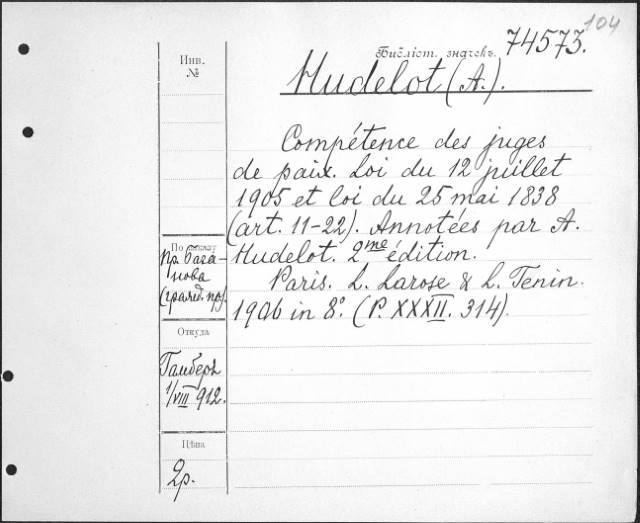 104
Библіот. значекъ. 74573.
Инв.
№
Hudelot (A.).
Compétence des juges
de paix. Loi du 12 juillet
1905 et loi du 25 mai 1838
(art. 11-22). Annotées par A.
Hudelot. 2me édition.
Paris. L. Larose & L. Tenin.
1906 in 8º. (P. XXXII. 314).
По заказу
пр. Бага-
нова
(гражд. пр.)
Откуда
Гамберъ
1/VIII 912.
Цѣна
2р.